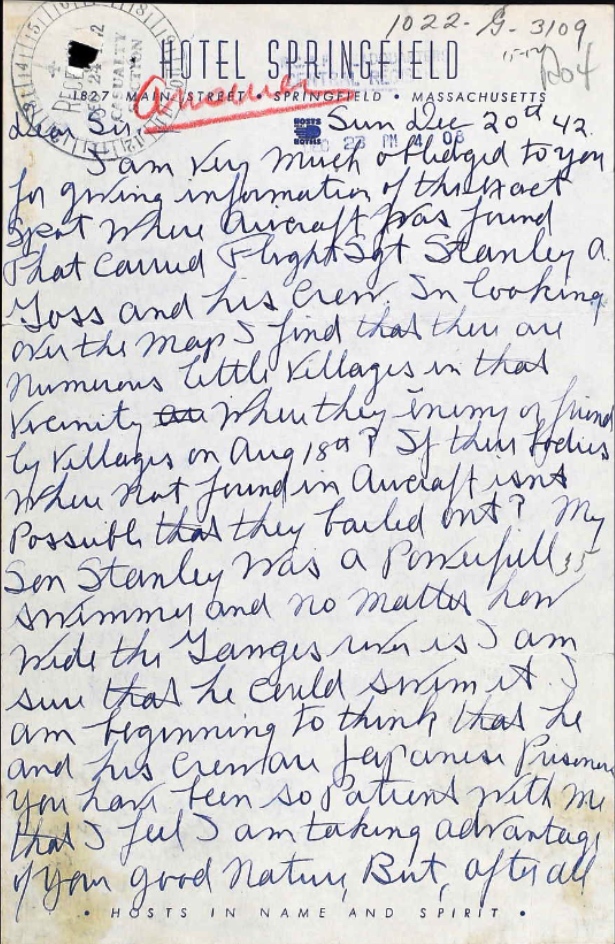 1022-G-3109
HOTEL SPRINGFIELD
1827 MAIN STREET • SPRINGFIELD • MASSACHUSETTS
HOSTS
HOTELS
Dear Sir, Sun Dec 20th 42.
I am very much obliedged to you
for giving information of the exact
spot where aircraft was found
that carried Flight Sgt Stanley A.
Goss and his crew. In looking
over the map I find that there are
numerous little villages in that
vicinity where they enemy or friend
ly villages on Aug 18th? If their bodies
where not found in aircraft isnt
possible that they bailed out? My
Son Stanley was a powerfull
swimmer and no matter how
wide the Ganges river is I am
sure that he could swim it. I
am beginning to think that he
and his crew are Japanese Prisoners
you have been so patient with me
that I feel I am taking advantage
of your good nature, But, after all
• HOSTS IN NAME AND SPIRIT •